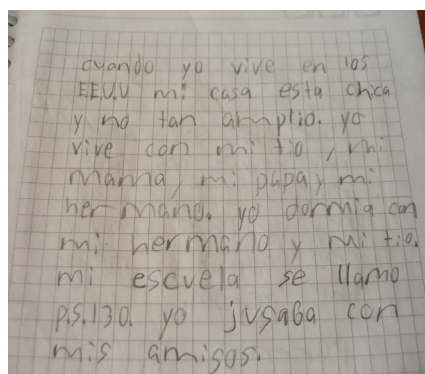 cuando yo vive en los
EE.U.U mi casa esta chica
y no tan amplio. yo
vive con mi tio, mi
mama, mi papa y mi
hermano. yo dormia con
mi hermano y mi tio.
mi escuela se llamo
p.s.130. yo jugaba con
mis amigos.